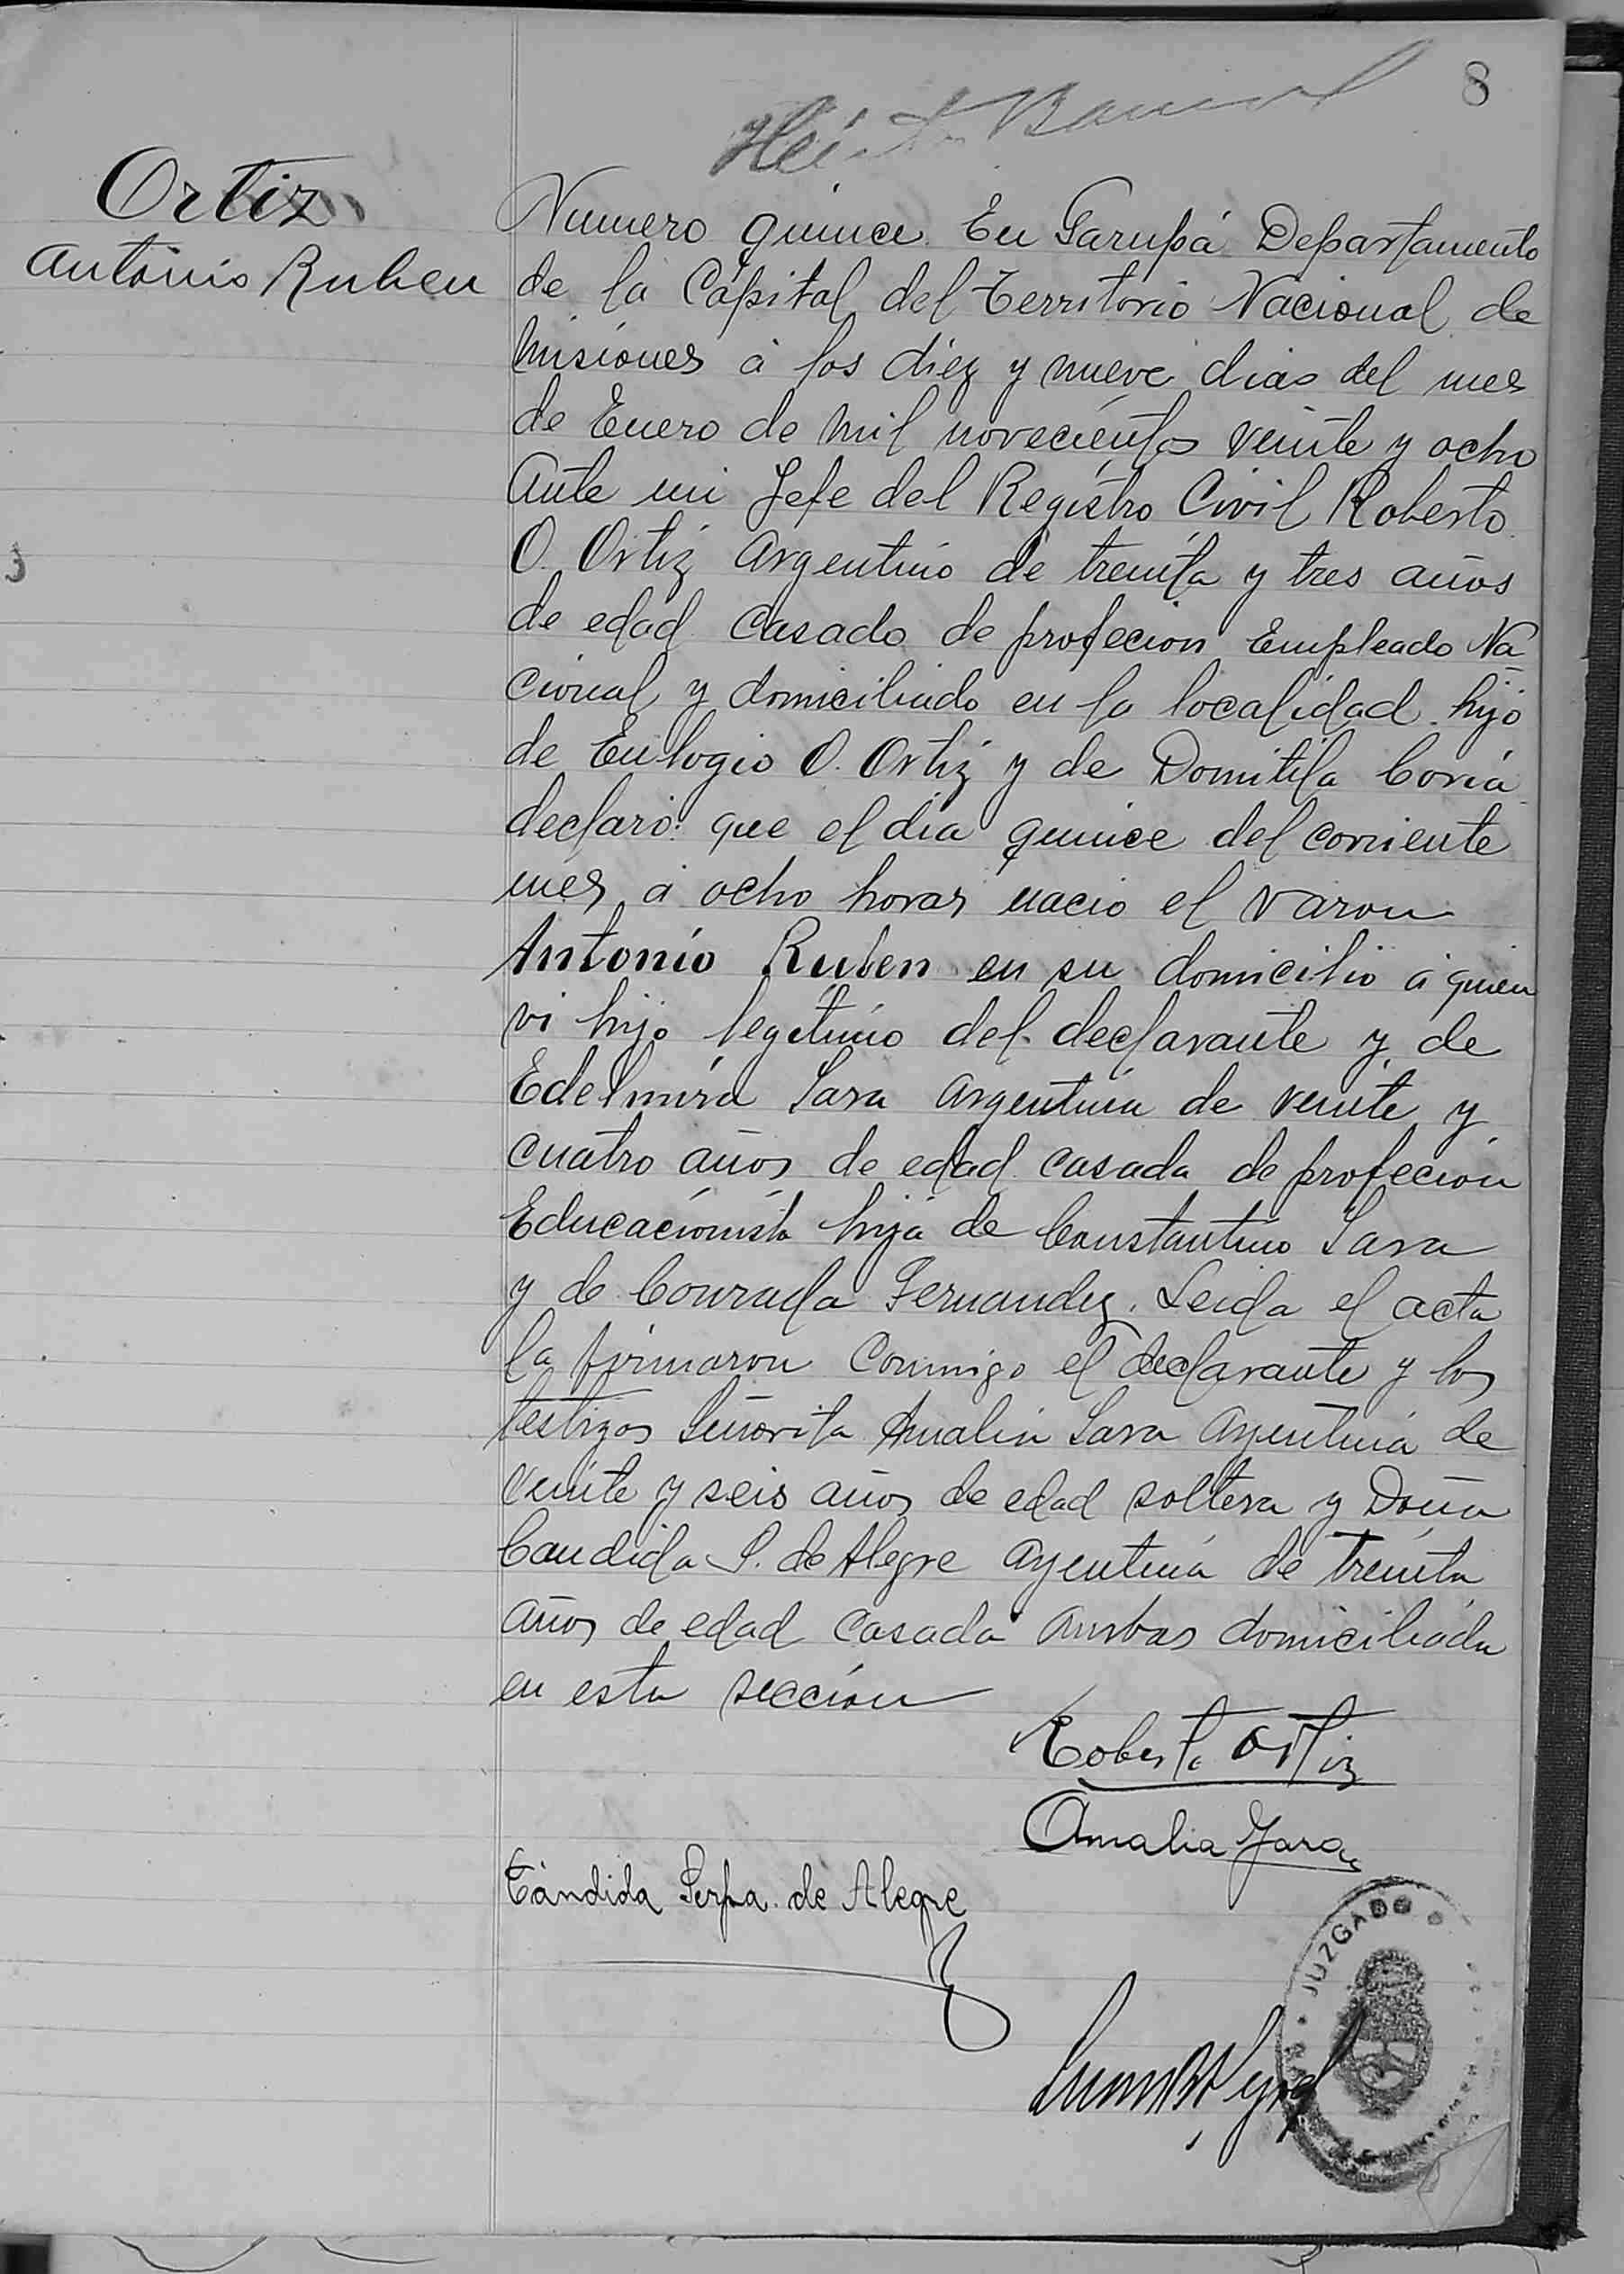 8
Ortiz
Antonio Ruben
Numero quince. En Garupá Departamento
de la Capital del Territorio Nacional de
Misiones á los diez y nueve dias del mes
de Enero de mil novecientos veinte y ocho
Ante mi Jefe del Registro Civil Roberto
O. Ortiz Argentino de treinta y tres años
de edad casado de profecion Empleado Na
cional y domiciliado en la localidad hijo
de Eulogio O. Ortiz y de Domitila Coria
declaró: que el dia quince del corriente
mes á ocho horas nacio el varon
Antonio Ruben en su domicilio á quien
vi hijo legitimo del declarante y de
Edelmira Jara Argentina de veinte y
cuatro años de edad casada de profecion
Educacionista hija de Constantino Jara
y de Conrada Fernandez. Leida el acta
la firmaron conmigo el declarante y los
testigos Señorita Amalia Jara Argentina de
veinte y seis años de edad soltera y Doña
Candida S. de Alegre Argentina de treinta
años de edad casada ambas domiciliada
en esta sección
Roberto Ortiz
Amalia Jara
Cándida Serpa de Alegre
JUZGADO